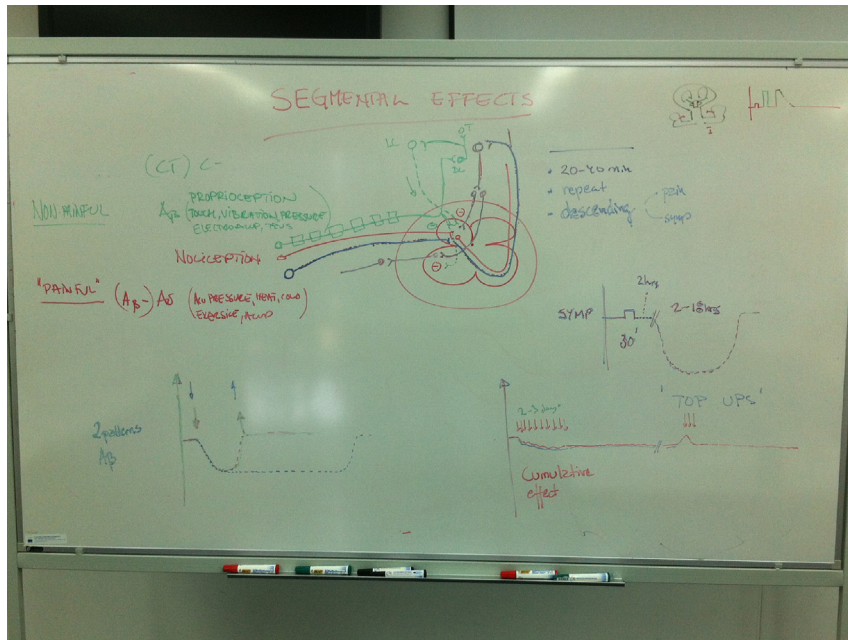 SEGMENTAL EFFECTS
(CT) C-
NON-PAINFUL
Aβ (PROPRIOCEPTION
TOUCH, VIBRATION, PRESSURE)
NOCICEPTION
"PAINFUL" (Aβ-) Aδ (ACUPRESSURE, HEAT, COLD
EXERSICE, ACID)
• 20-40 min
• repeat
• descending
pain
symp
SYMP
30'
2 hrs
2 patterns
Aβ
Cumulative
effect
'TOP UPS'